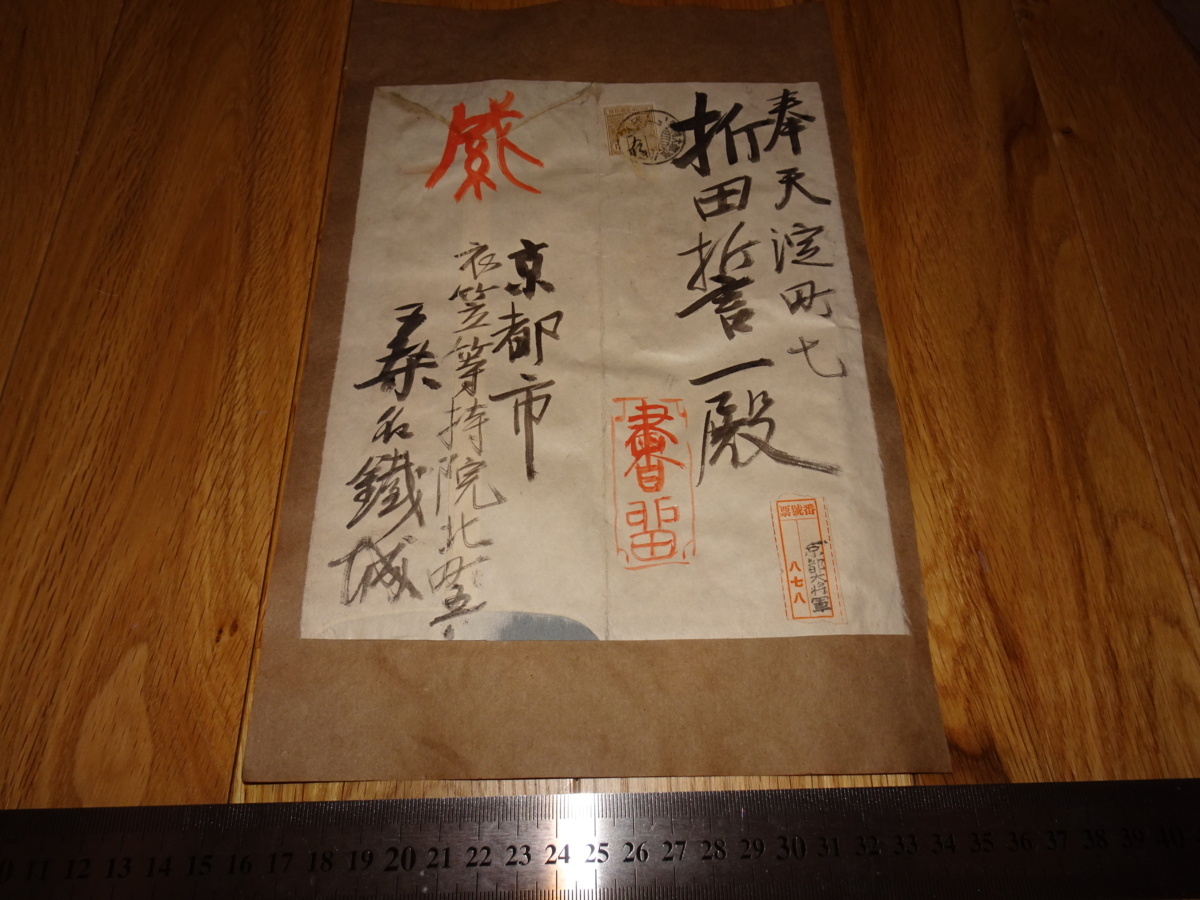 奉天淀町七
折田誓一殿
書留
番號票
京都大將軍
八七八
京都市
衣笠等持院北町
桑名鐵城
10 11 12 13 14 15 16 17 18 19 20 21 22 23 24 25 26 27 28 29 30 31 32 33 34 35 36 37 38 39 40